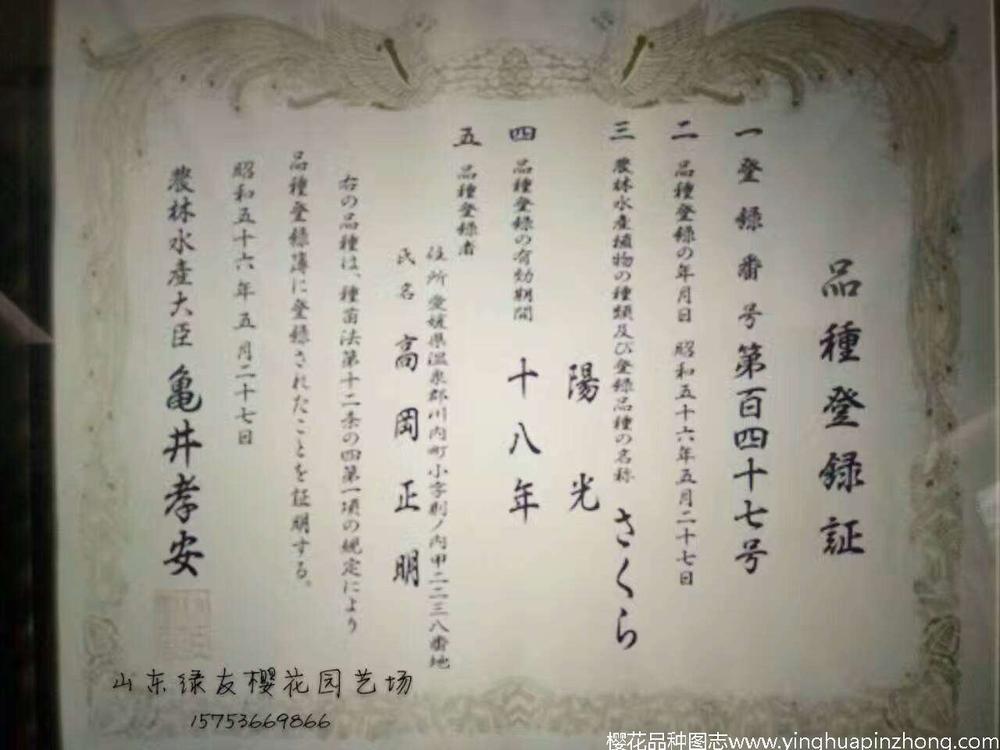 品種登録証
一 登録番号 第百四十七号
二 品種登録の年月日 昭和五十六年五月二十七日
三 農林水産植物の種類及び登録品種の名称 さくら
陽光
四 品種登録の有効期間 十八年
五 品種登録者
住所 愛媛県温泉郡川内町小字 ノ内甲二二三八番地
氏名 高岡正明
右の品種は、種苗法第十二条の四第一項の規定により
品種登録簿に登録されたことを証明する。
昭和五十六年五月二十七日
農林水産大臣 亀井孝安
山东绿友樱花园艺场
15753669866
樱花品种图志www.yinghuapinzhong.com